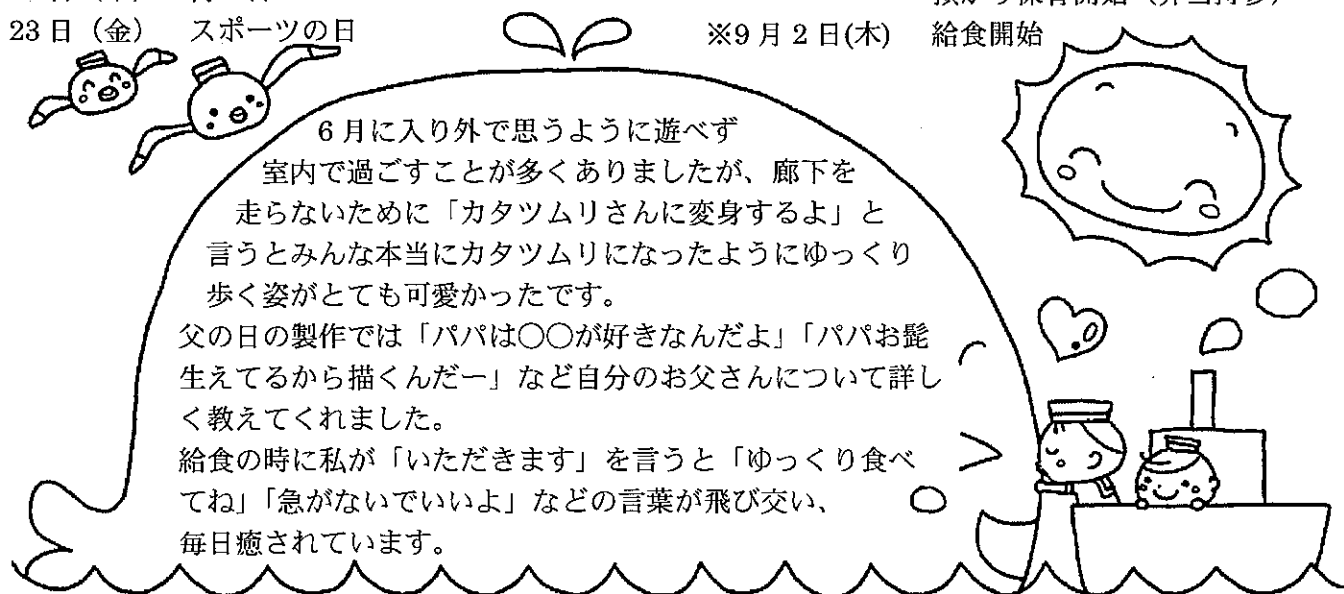 23日（金） スポーツの日
※9月2日(木) 給食開始
6月に入り外で思うように遊べず
室内で過ごすことが多くありましたが、廊下を
走らないために「カタツムリさんに変身するよ」と
言うとみんな本当にカタツムリになったようにゆっくり
歩く姿がとても可愛かったです。
父の日の製作では「パパは〇〇が好きなんだよ」「パパお髭
生えてるから描くんだー」など自分のお父さんについて詳し
く教えてくれました。
給食の時に私が「いただきます」を言うと「ゆっくり食べ
てね」「急がないでいいよ」などの言葉が飛び交い、
毎日癒されています。